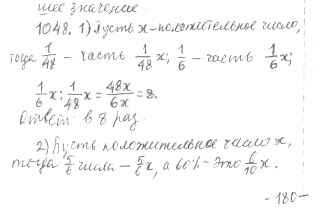 шее значение.
1048. 1) Пусть x - положительное число,
тогда 1/48 - часть 1/48 x; 1/6 - часть 1/6 x;
1/6 x : 1/48 x = 48x/6x = 8.
Ответ: в 8 раз.
2) Пусть положительное число x,
тогда 5/6 числа - 5/6 x, а 60% - это 6/10 x.
- 180 -